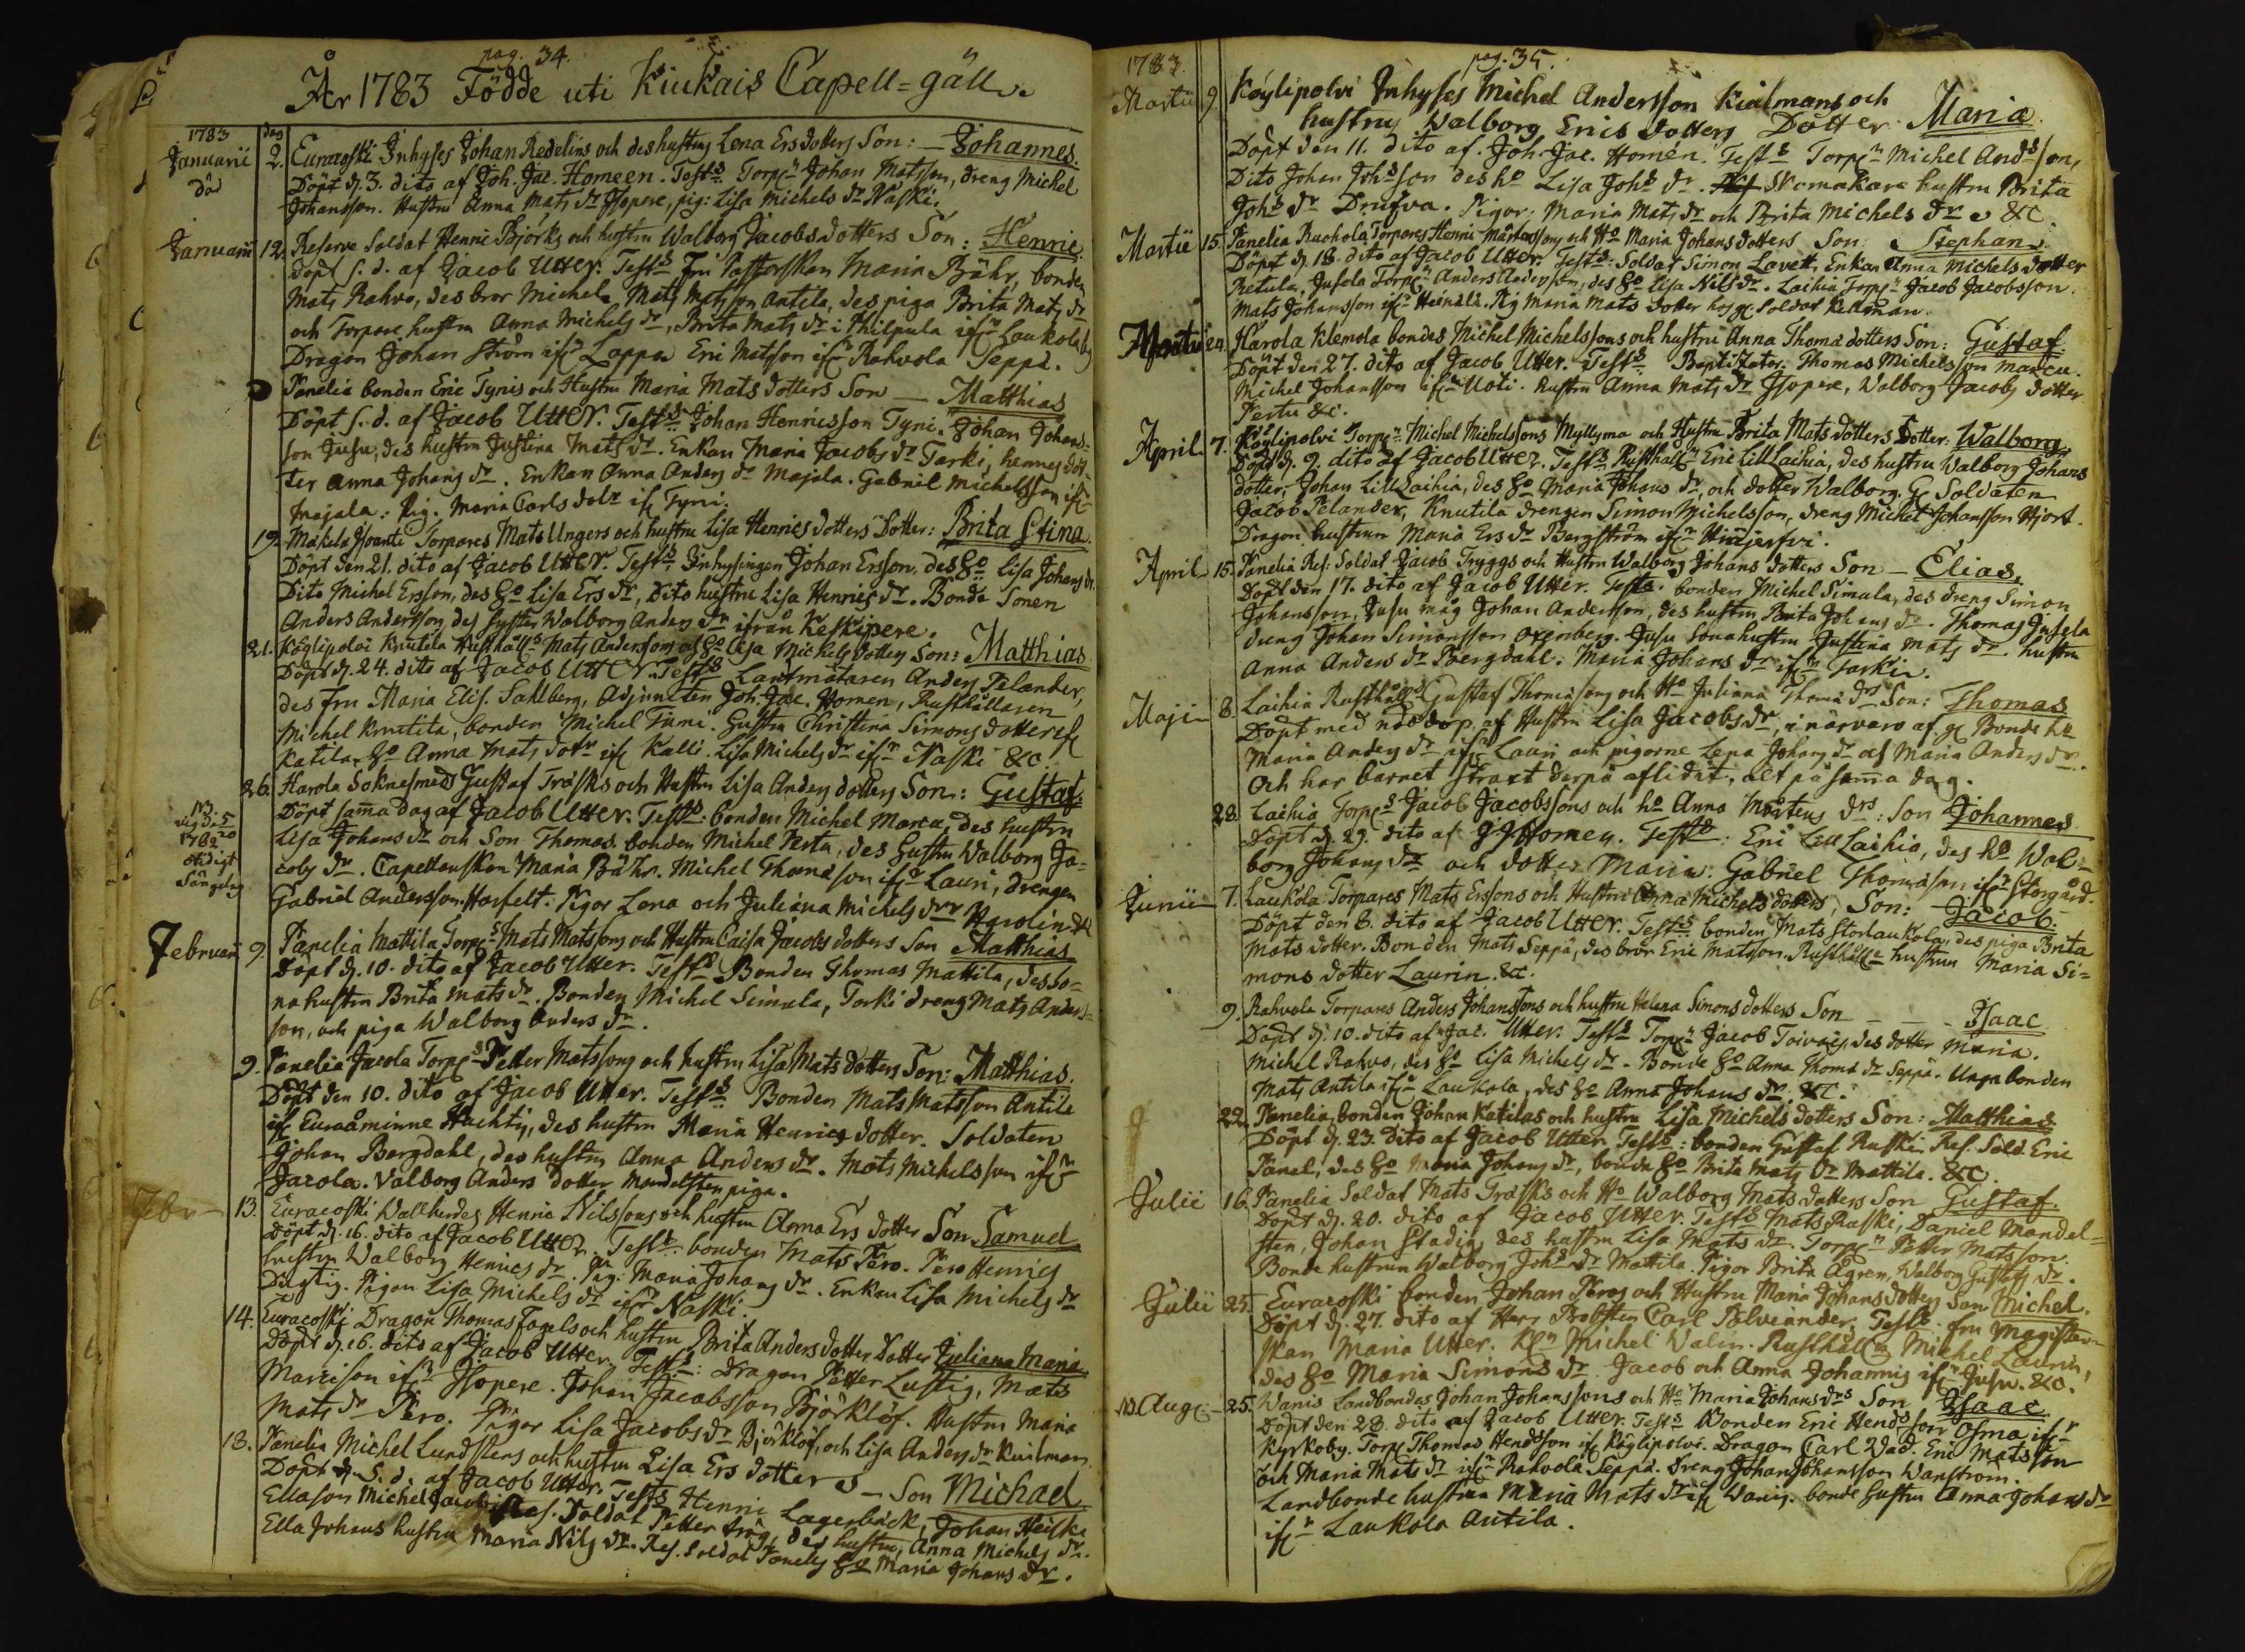 pag. 34.
År 1783 Födde uti Kiukais Capell=gäll
1783 dag
Januarii 2. Euraoski Inhyses Johan Redelins och des hustrus Lena Ersdotters Son: — Johannes.
Döpt d. 3. dito af Joh. Jac. Homeen. Test:s Torp:n Johan Matsson, dreng Michel
Johansson. Hustru Anna Mats dr Isopere, pig: Lisa Michels dr Naski.
Januarii 12. Reserve Soldat Henric Björks och hustru Walborg Jacobsdotters Son: Henric
döpt s. d. af Jacob Utter. Test:s Fru Pastorskan Maria Bähr, bonden
Mats Rahvo, des bror Michel, Mats Matsson Antila, des piga Brita Mats dr
och Torpare hustru Anna Michels dr, Brita Mats dr i Philpula ifr Laukola by
Dragon Johan Ström ifr Loppa Eric Matsson ifr Rahvola Seppä.
Panelia bonden Eric Tynis och Hustru Maria Mats dotters Son — Matthias
Döpt s. d. af Jacob Utter. Test:s Johan Henricsson Tyni. Johan Johans=
son Jusu, des hustru Justina Mats dr. Enkan Maria Jacobs dr Tarki, hennes dot=
ter Anna Johans dr. Enkan Anna Anders dr Majala. Gabriel Michelsson ifr
Majala. Pig. Maria Carls dotr ifr Tyni.
19. Mäkelä Isoanti Torpares Mats Ungers och hustru Lisa Henrics dotters Dotter: Brita Stina.
Döpt den 21. dito af Jacob Utter. Test:s Inhysingen Johan Ersson, des ho Lisa Johans dr.
Dito Michel Ersson, des ho Lisa Ers dr, Dito hustru Lisa Henrics dr. Bonde Sonen
Anders Andersson, des syster Walborg Anders dr ifrån Keskipere.
21. Köylipolvi Knutila Rusthåll:s Mats Anderssons och ho Lisa Michels dotters Son: Matthias
Döpt d. 24. dito af Jacob Utter. Test:s Lantmätaren Anders Pelander,
des fru Maria Elis. Sahlberg, Adjuncten Joh. Jac. Homen, Rusthållaren
Michel Knutila, bonden Michel Tumi. Hustru Christina Simons dotter ifr
Katila. ho Anna Mats dotr ifr Kalli. Lisa Michels dr ifr Naski &c.
26. Harola Soknesmed Gustaf Träsks och Hustru Lisa Anders dotters Son: Gustaf.
Döpt samma dag af Jacob Utter. Test:s bonden Michel Marcu, des hustru
Lisa Johans dr och Son Thomas. bonden Michel Pertu, des hustru Walborg Ja=
cobs dr. Capellanskan Maria Bähr. Michel Thomasson ifr Lauri, drengen
Gabriel Andersson Harfelt. Pigor Lena och Juliana Michels drr
Februarii 9. Panelia Mattila Torp:s Mats Matssons och Hustru Caisa Jacobs dotters Son Matthias
Döpt d. 10. dito af Jacob Utter. Test:s Bonden Thomas Mattila, des so=
nahustru Brita Mats dr. Bonden Michel Simula, Torki dreng Mats Anders=
son, och piga Walborg Anders dr.
9. Panelia Jacola Torp:s Petter Matssons och hustru Lisa Mats dotters Son: Matthias.
Döpt den 10. dito af Jacob Utter. Test:s Bonden Mats Matsson Antila
ifr Euraåminne Huchti, des hustru Maria Henrics dotter. Soldaten
Johan Bergdahl, des hustru Anna Anders dr. Mats Michelsson ifr
Jacola. Valborg Anders dotter Mandelsten piga.
Febr. 13. Euraoski Wallherdes Henric Nilssons och hustru Anna Ers dotter Son Samuel
Döpt d. 16. dito af Jacob Utter. Test:s bonden Mats Pero. Pero Henrics
hustru Walborg Henrics dr. Pig: Maria Johans dr. Enkan Lisa Michels dr
Duglig. Pigan Lisa Michels dr ifr Naski.
14. Euraoski Dragon Thomas Fagels och hustru Brita Anders dotter Dotter Juliana Maria
Döpt d. 16. dito af Jacob Utter. Test:s: Dragon Petter Lustig, Mats
Marcison ifr Isopere. Johan Jacobsson Björklöf. Hustru Maria
Mats dr Pero. Pigor Lisa Jacobs dr Björklöf, och Lisa Anders dr Kuilman
18. Panelia Michel Lundstens och hustru Lisa Ers dotters — Son Michael
Döpt d. s. d. af Jacob Utter. Test:s Henric Lagerbäck, Johan Heiska
Ellason Michel Res. Soldat Petter Trög, des hustru Anna Michels dr.
Ella Johans hustru Maria Nils dr. Res. Soldat Panels ho Maria Johans dr.
pag. 35.
1783.
Martii 9. Köylipolvi Inhyses Michel Andersson Kuilmans och
hustrus Walborg Erics dotters Dotter Maria.
Döpt den 11. dito af Joh. Jac. Homén. Test:s Torp:n Michel Andsson,
Dito Johan Johsson des ho Lisa Johs dr. Skomakare hustru Brita
Johs dr Drufva. Pigor: Maria Mats dr och Brita Michels dr &c.
Martii 15. Panelia Ruohola Torpares Henric Mårtenssons och Ho Maria Johans dotters Son: Stephan.
Döpt d. 18. dito af Jacob Utter. Test:s: Soldat Simon Lovett, Enkan Anna Michels dotter
Ketula, Jusela Torp:n Anders Andersson, des ho Lisa Nils dr. Laihia Torp:n Jacob Jacobsson.
Mats Johansson ifr Heinilä. Pig Maria Mats dotter hos gl. Soldat Kellman.
Martii 24. Harola Klemola bondes Michel Michelssons och hustru Anna Thomæ dotters Son: Gustaf.
Döpt den 27. dito af Jacob Utter. Test:s Baptizator. Thomas Michelsson Marcu.
Michel Johansson ifr Uoti. hustru Anna Mats dr Isopere, Walborg Jacobs dotter
Pertu &c.
April 7. Köylipolvi Torp:n Michel Michelssons Myllyma och Hustru Brita Mats dotters Dotter: Walborg.
Döpt d. 9. dito af Jacob Utter. Test:s Rusthåll:n Eric Lill Laihia, des hustru Walborg Johans
dotter, Johan Lill Laihia, des ho Maria Johans dr, och dotter Walborg. gl Soldaten
Jacob Pelander, Knutila drengen Simon Michelsson, dreng Michel Johansson Hjort.
Dragon hustrun Maria Ers dr Bergström ifr Hinnerjoki.
April 15. Panelia Res: Soldat Jacob Tryggs och Hustru Walborg Johans dotters Son — Elias.
Döpt den 17. dito af Jacob Utter. Test:s bonden Michel Simula, des dreng Simon
Johansson, Jusu måg Johan Andersson, des hustru Brita Johans dr. Thomas Jusela
dreng Johan Simonsson Oxenberg. Jusu Sonahustru Justina Mats dr. hustru
Anna Anders dr Bergdahl. Maria Johans dr ifr Tarki.
Maji 8. Laihia Rusthåll:s Gustaf Thomæsons och Ho Juliana Thomæ drs Son: Thomas
Döpt med nöddop. af Hustru Lisa Jacobs dr, i närvaro af gl Bonde ho
Maria Anders dr ifr Lauri och pigorne Lena Johans dr och Maria Anders dr.
Och har barnet straxt derpå aflidit, alt på samma dag.
28. Laihia Torp:s Jacob Jacobssons och ho Anna Mårtens drs: Son Johannes
Döpt d. 29. dito af J J Homen. Test:s: Eric Lill Laihia, des ho Wal=
borg Johans dr och dotter Maria. Gabriel Thomæson ifr Storgård.
Junii 7. Laukola Torpares Mats Erssons och Hustru Anna Michels dotters, Son: Jacob.
Döpt den 8. dito af Jacob Utter. Test:s bonden Mats Storlaukola, des piga Brita
Mats dotter. Bonden Mats Seppä, des bror Eric Matsson. Rusthåll:s hustrun Maria Si=
mons dotter Laurin &c.
9. Rahvola Torpares Anders Johanssons och hustru Helena Simons dotters Son — — Isaac
Döpt d. 10. dito af Jac. Utter. Test:s Torp:n Jacob Toivari, des dotter Maria.
Michel Rahvo, des ho Lisa Michels dr. Bonde ho Anna Thomæ dr Seppä. Unga bonden
Mats Antila ifr Laukola, des ho Anna Johans dr. &c.
22. Panelia bonden Johan Katilas och hustru Lisa Michels dotters Son: Matthias
Döpt d. 23. dito af Jacob Utter. Test:s: bonden Gustaf Raski. Res. Sold. Eric
Panel, des ho Maria Johans dr, bonde ho Brita Mats dr Mattila. &c.
Julii 16. Panelia Soldat Mats Träsks och Ho Walborg Mats dotters Son Gustaf.
Döpt d. 20. dito af Jacob Utter. Test:s Mats Raski, Daniel Mandel=
sten, Johan Stadig, des hustru Lisa Mats dr. Torp:n Petter Matsson.
Bonde hustrun Walborg Johs dr Mattila. Pigor Brita Ågren, Walborg Gustafs dr.
Julii 25. Euraoski bonden Johan Peros och Hustru Maria Johans dotters Son Michel.
Döpt d. 27. dito af Herr Probsten Carl Polviander. Test:s fru Magister=
skan Maria Utter. Kl:n Michel Walin. Rusthåll:n Michel Laurin,
des ho Maria Simons dr. Jacob och Anna Johannis ifr Jusu. &c.
NB. Aug. 25. Wanis Landbondes Johan Johanssons och Ho Maria Johans drs Son Isaac
Döpt den 28. dito af Jacob Utter. Test:s Bonden Eric Hendsson Osma ifr
Kyrkoby. Torp. Thomas Hendsson ifr Köylipolvi. Dragon Carl Wad. Eric Matsson
och Maria Mats dr ifr Rahvola Seppä. dreng Johan Johansson Wanström.
Landbonde hustrun Maria Mats dr ifr Wanis. bonde hustru Anna Johans dr
ifr Laukola Antila.